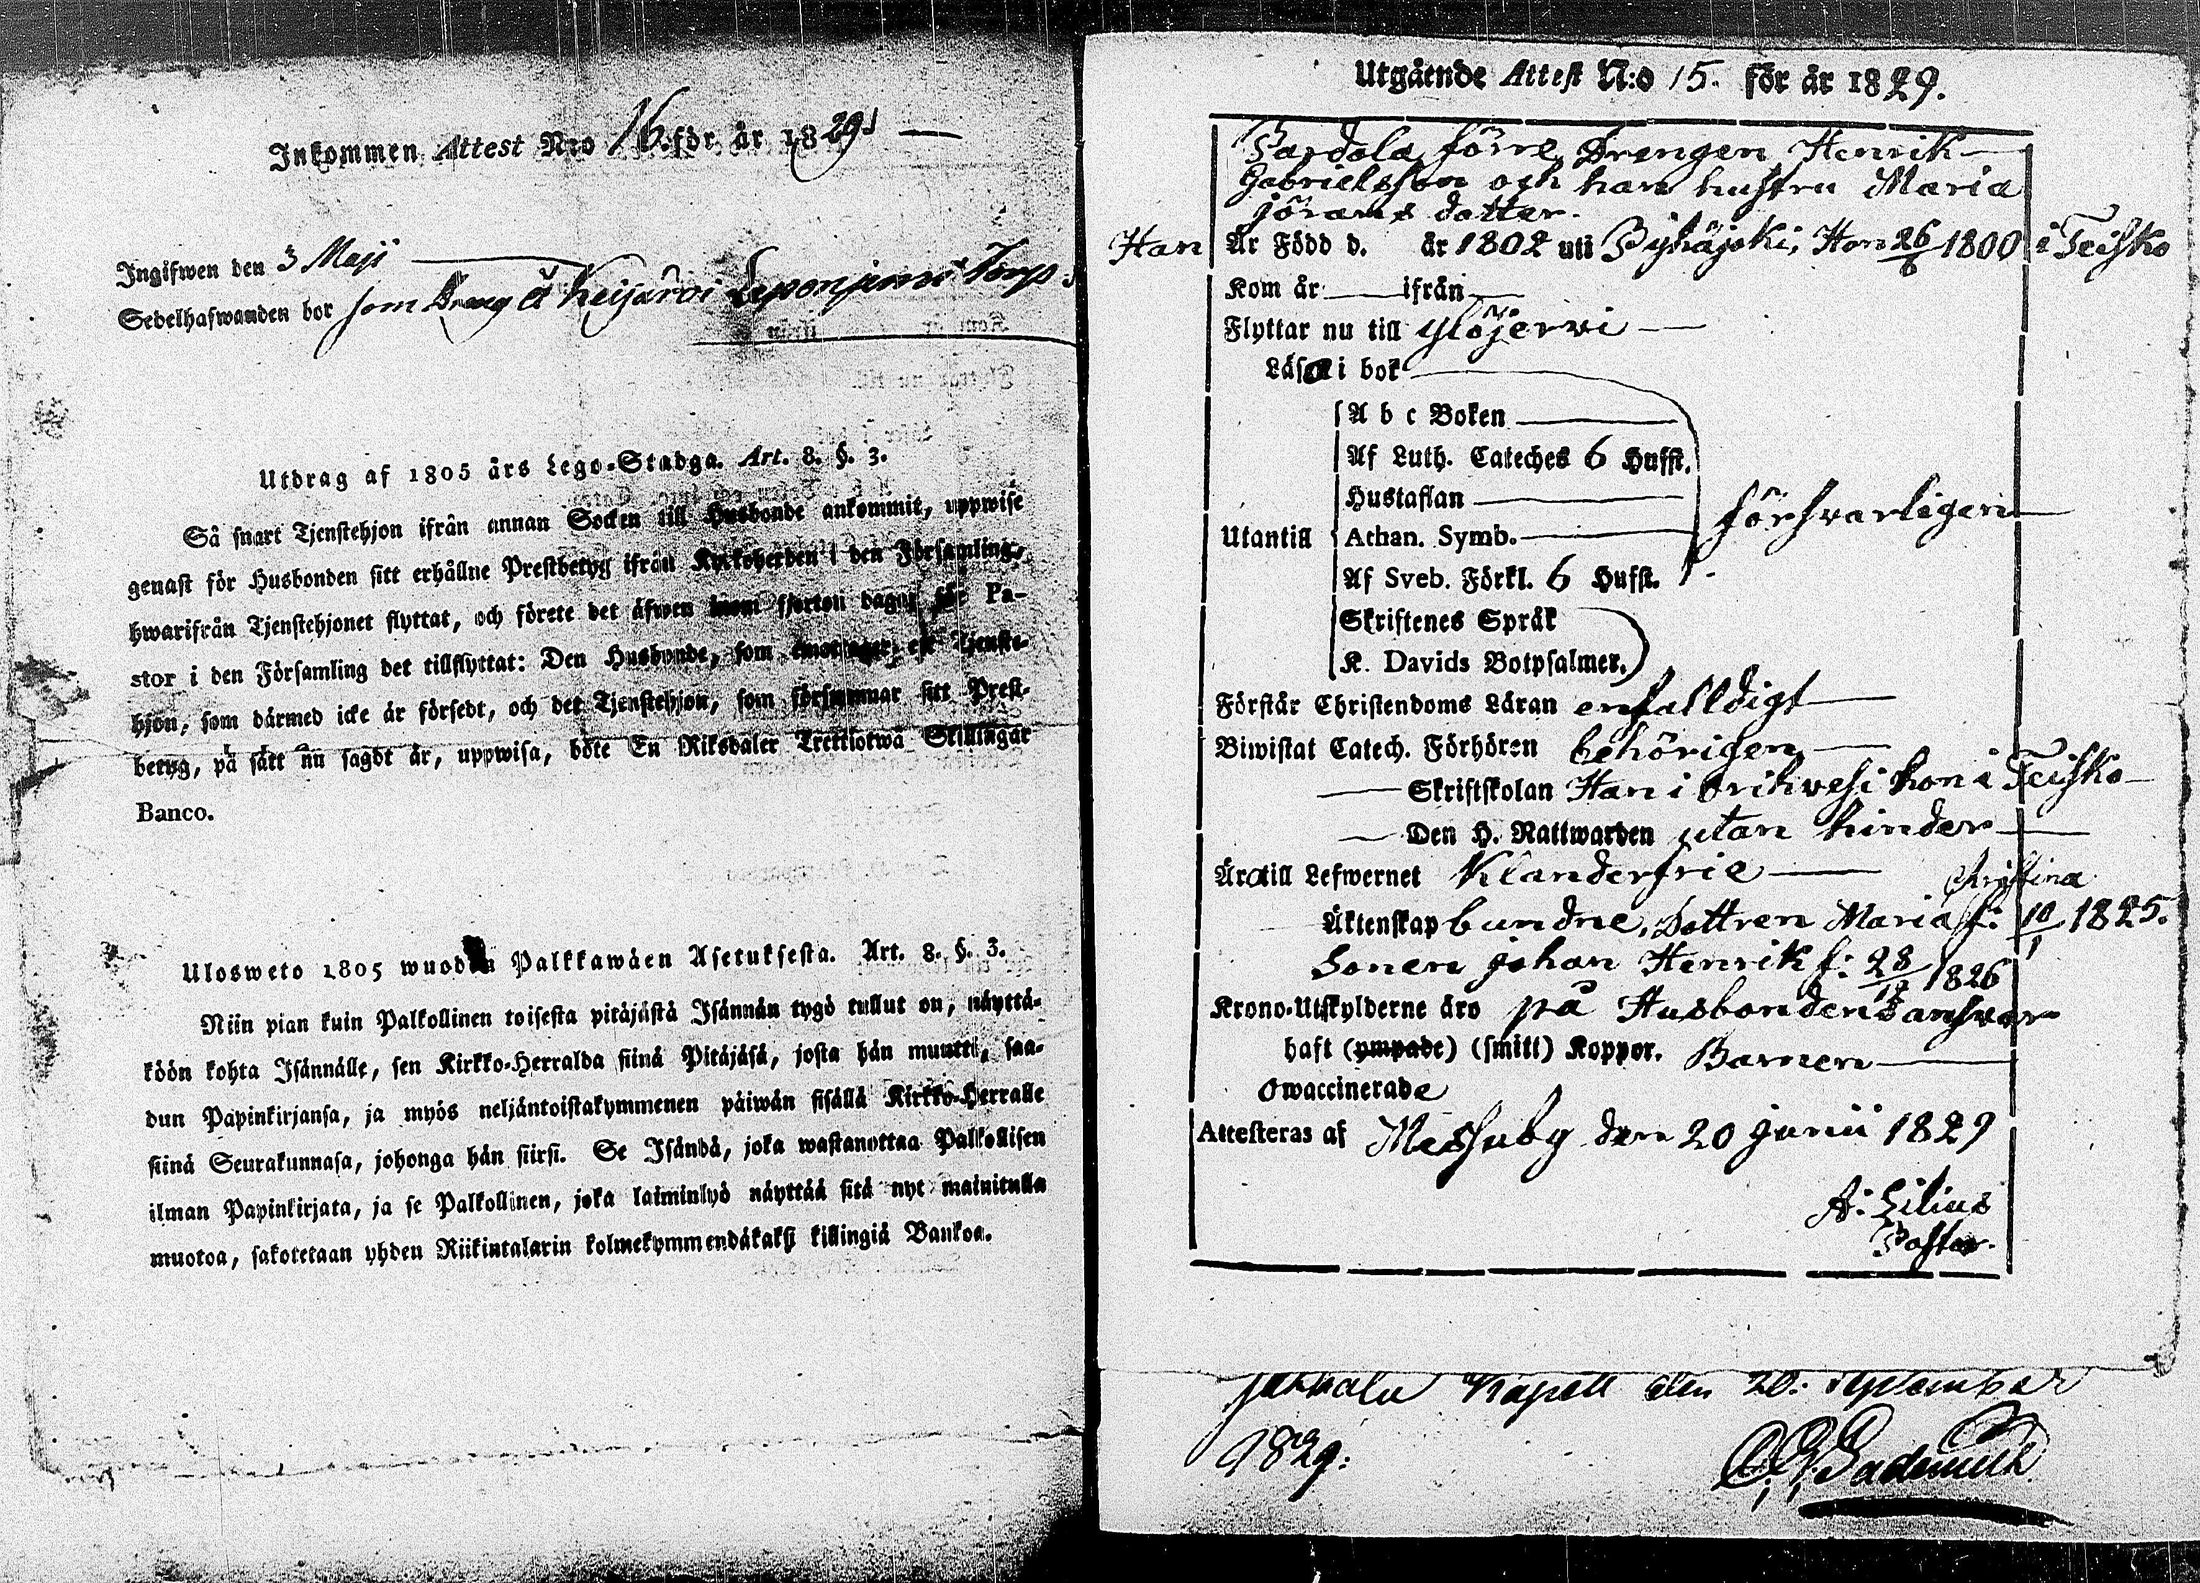 Inkommen Attest N:o 16. för år 1829
Ingifwen den 3 Maji
Sedelhafwanden bor som Dreng å Keijärvi Leponjemi Torp
Utdrag af 1805 års Lego-Stadga. Art. 8. §. 3.
Så snart Tjenstehjon ifrån annan Socken till Husbonde ankommit, uppwise
genast för Husbonden sitt erhållne Prestbetyg ifrån Kyrkoherden i den Församling,
hwarifrån Tjenstehjonet flyttat, och förete det äfwen inom fjorton dagar för Pa-
stor i den Församling det tillflyttat: Den Husbonde, som emottager ett Tjenste-
hjon, som därmed icke är försedt, och det Tjenstehjon, som försummar sitt Prest-
betyg, på sätt nu sagdt är, uppwisa, böte En Riksdaler Trettiotwå Skillingar
Banco.
Ulosweto 1805 wuoden Palkkawäen Asetuksesta. Art. 8. §. 3.
Niin pian kuin Palkollinen toisesta pitäjästä Isännän tygö tullut on, näyttä-
köön kohta Isännälle, sen Kirkko-Herralda siinä Pitäjäsä, josta hän muutti, saa-
dun Papinkirjansa, ja myös neljäntoistakymmenen päiwän sisällä Kirkko-Herralle
siinä Seurakunnasa, johonga hän siirsi. Se Isändä, joka wastanottaa Palkollisen
ilman Papinkirjata, ja se Palkollinen, joka laiminlyö näyttää sitä nyt mainitulla
muotoa, sakotetaan yhden Riikintalarin kolmekymmendäkaksi killingiä Bankoa.
Utgående Attest N:o 15. för år 1829.
Pardola förre Drengen Henrik
Gabrielsson och han hustru Maria
Jörans dotter.
Han Är Född d. år 1802 uti Pyhäjoki, Hon 26/6 1800 i Teisko
Kom år ifrån
Flyttar nu till Ylöjerwi
Läsa i bok
A b c Boken
Af Luth. Cateches 6 Hufst.
Hustaflan
Utantill Athan. Symb. försvarligen
Af Sveb. Förkl. 6 Hufst.
Skriftenes Språk
K. Davids Botpsalmer.
Förstår Christendoms Läran enfalldigt
Biwistat Catech. Förhören behörigen
Skriftskolan Han i Orihvesi hon i Teisko
Den H. Nattwarden utan hinder
Ära till Lefwernet Klanderfrie
Christina
Äktenskap bundne, Dottren Maria f: 10/1 1825.
Sonen Johan Henrik f: 28/12 1826
Krono-Utskylderne äro på Husbondens answar
haft (ympade) (smitt) Koppor. Barnen
Owaccinerade
Attesteras af Messuby den 20 Junii 1829
A: Lilius
Pastor.
Kapell den 20: September
1829: